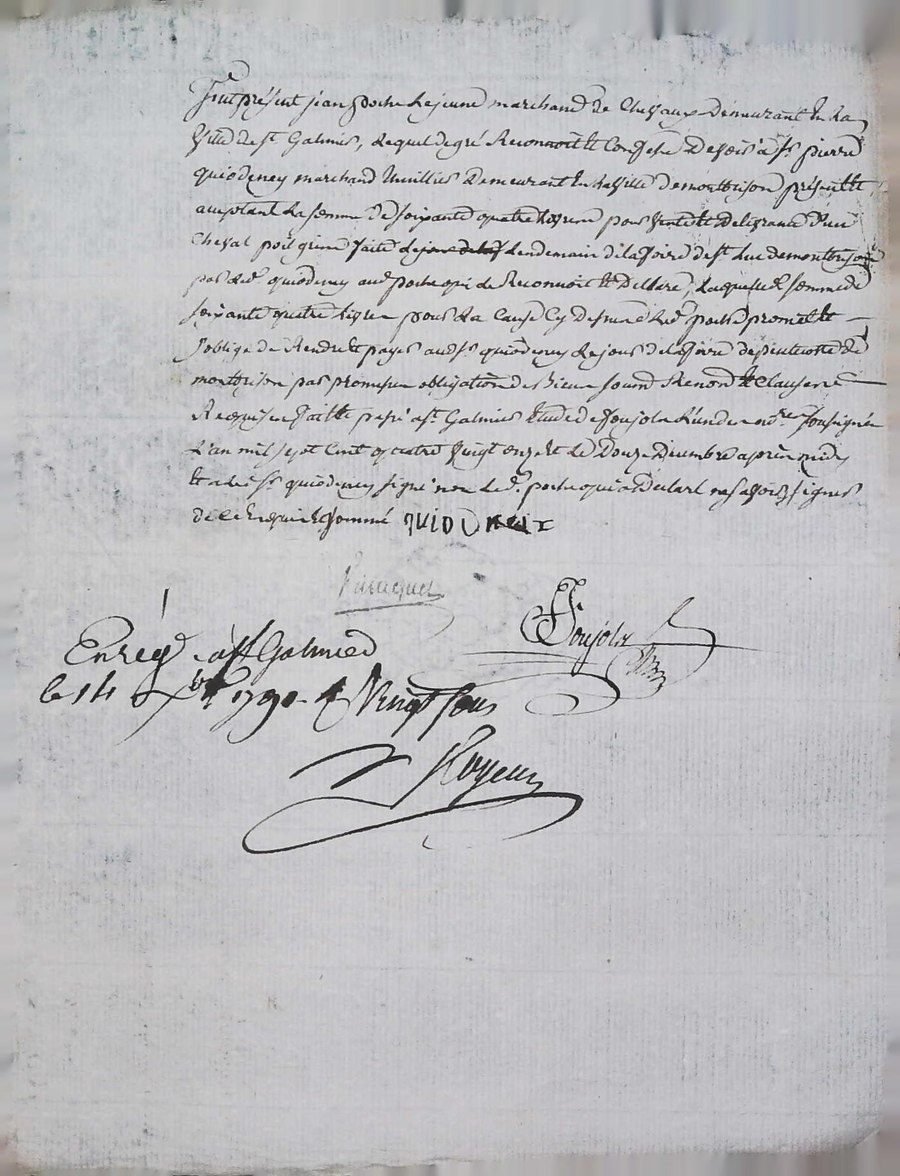 Fut présent jean poche Lejeune marchand de Chevaux Demeurant En La
Ville de St Galmier, Lequel de gré Reconnoit et Confesse Devoir à Sr pierre
quiodeney marchand Demeurant En La Ville de montbrison présent et
acceptant La somme De Soixante quatre Livres pour Vente et Delivrance D'un
Cheval poil grison faite Lendemain de La foire de St Luc de montbrison
par Led quiodeney aud poche qui Le Reconnoit et Déclare, Laquelle somme de
Soixante quatre Livres pour La Cause Cy Dessus Led poche promet et
S'oblige de Rendre et payer aud Sr quiodeney Le jour de La foire de pentecotte de
montbrison par promesse obligation de Biens soumd Renond et Clauses
Requises fait et passé à St Galmier Etude de Soujols L'un des no.res Soussignés
L'an mil Sept Cent quatre Vingt onze et Le Douze Decembre après midy
Et a Led Sr quiodeney signé non Led poche qui a Déclaré ne savoir signer
de ce Enquis et Sommé
Soujols
Enrég à St Galmier
le 14 Xbre 1791 Vingt sous